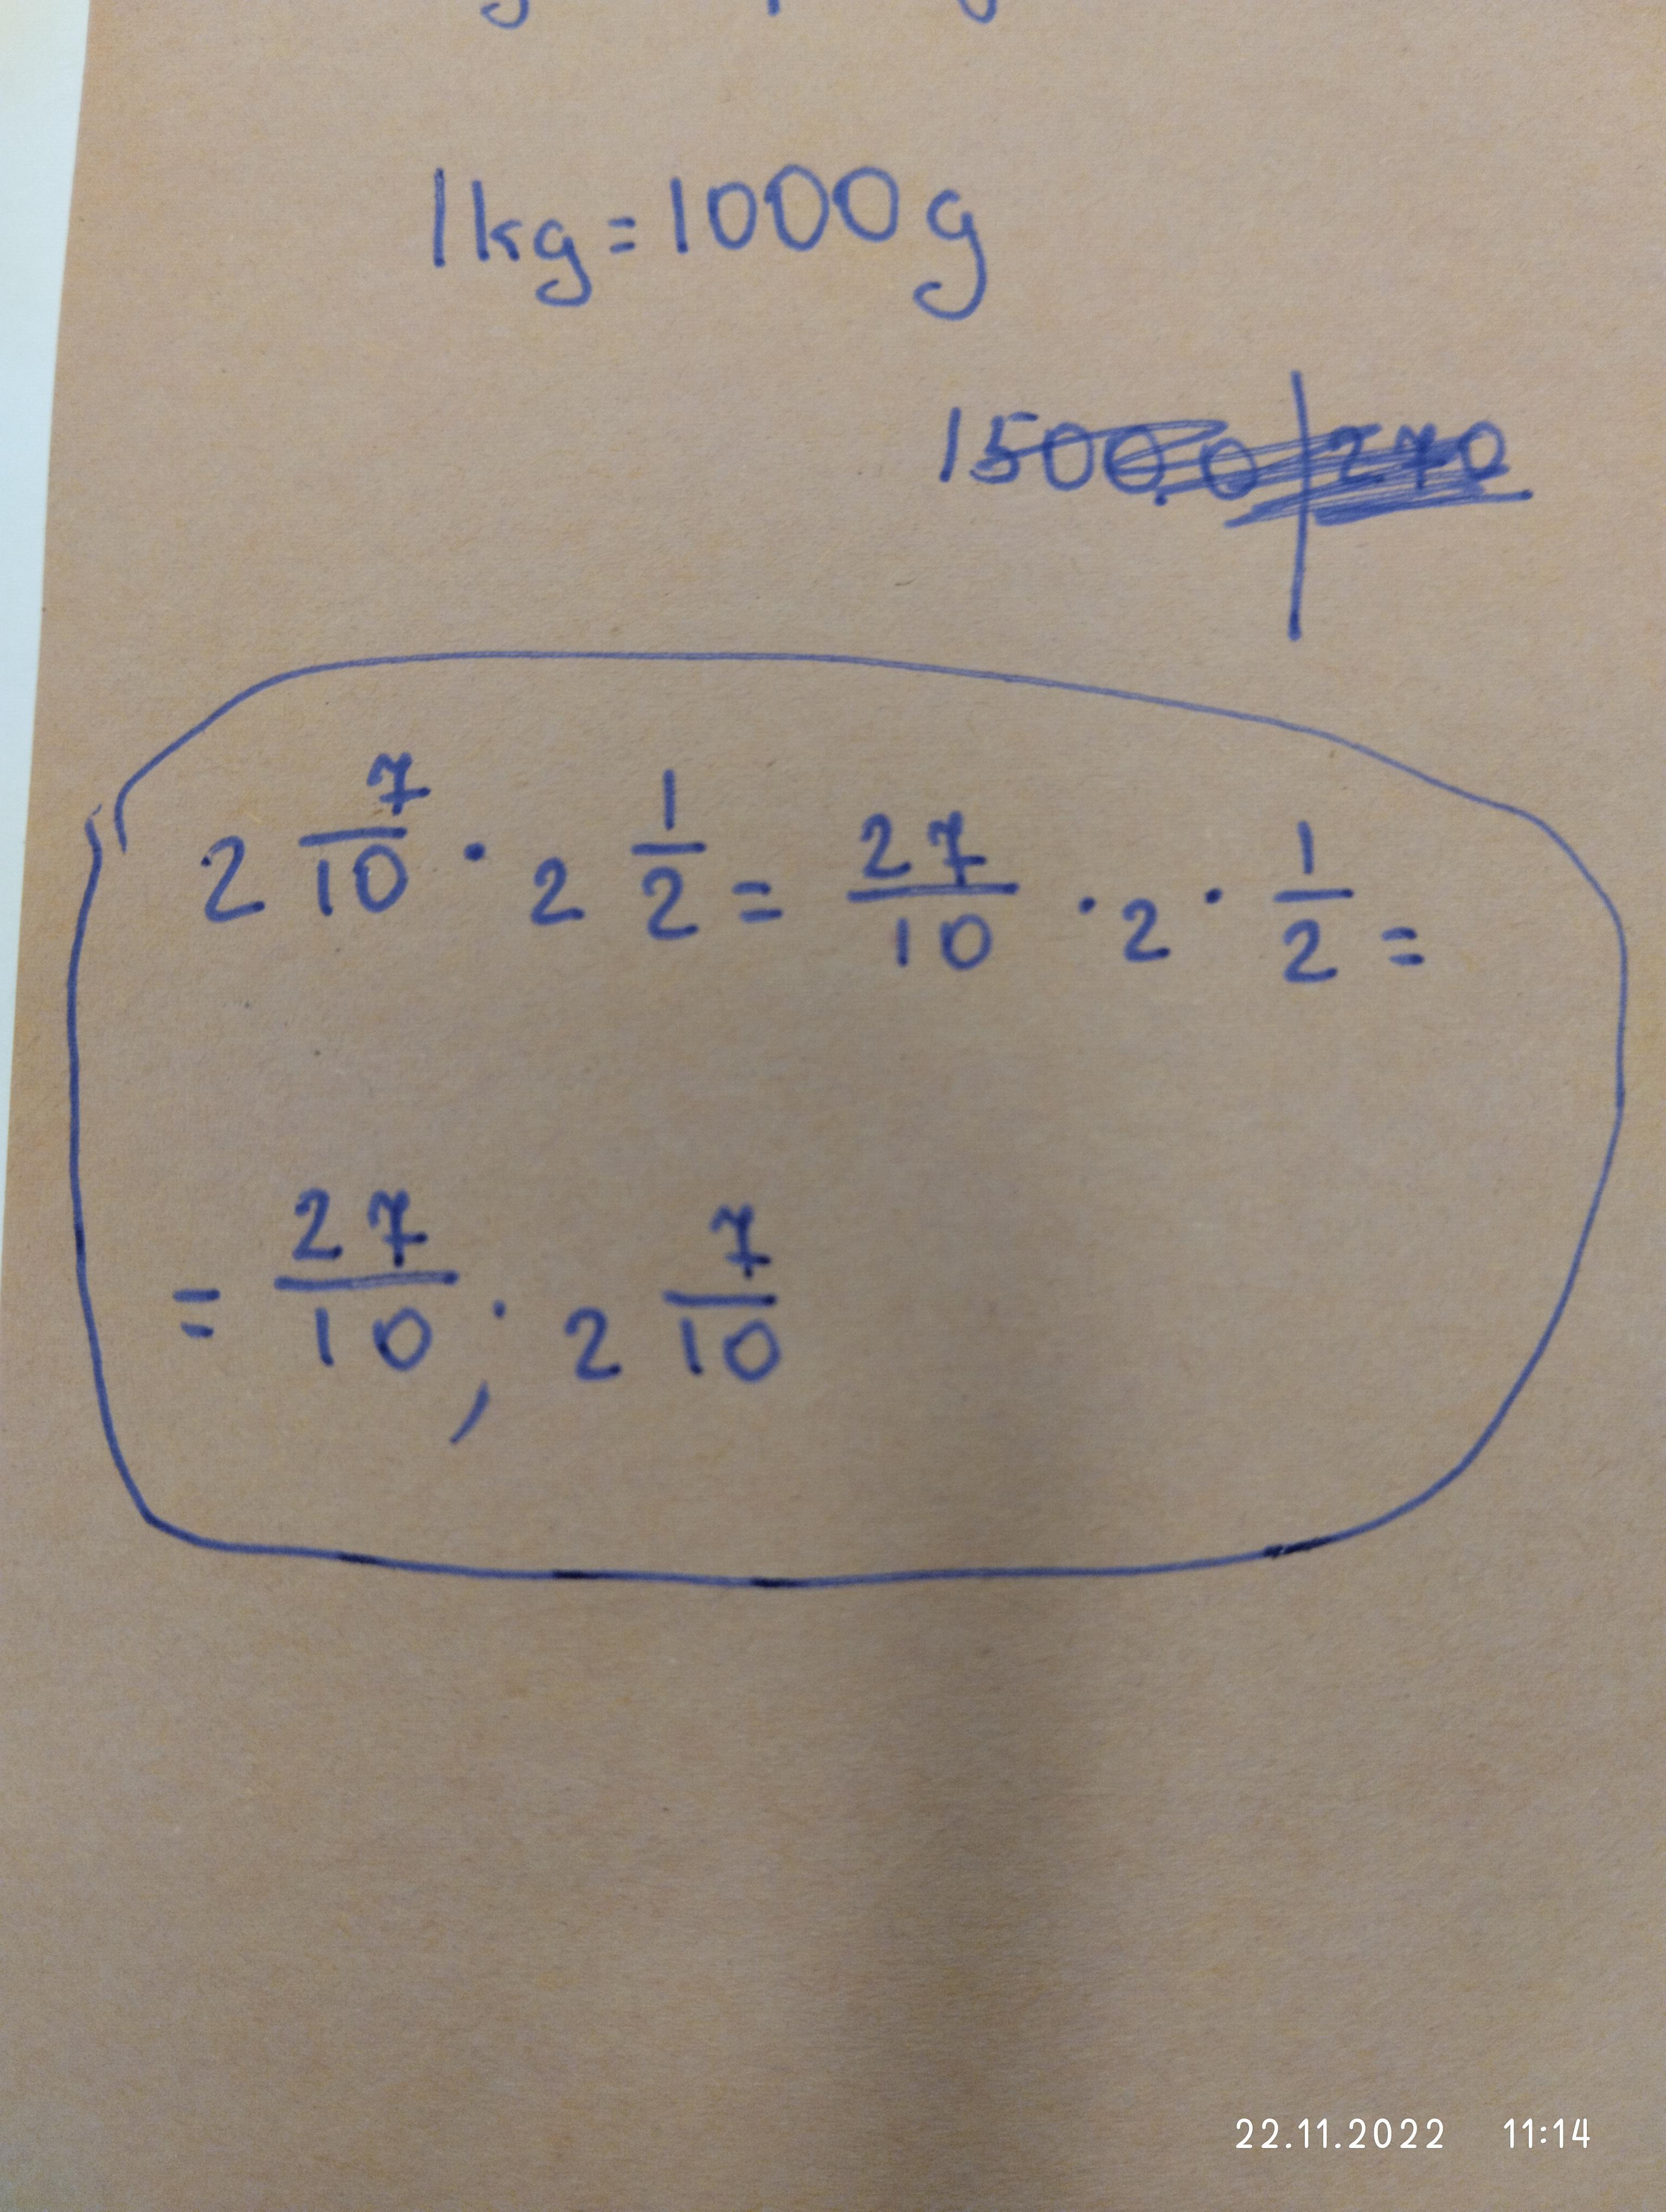 1kg=1000g
1500.0 | 270
2 7/10 · 2 1/2 = 27/10 · 2 · 1/2 =
= 27/10 ; 2 7/10
22.11.2022 11:14